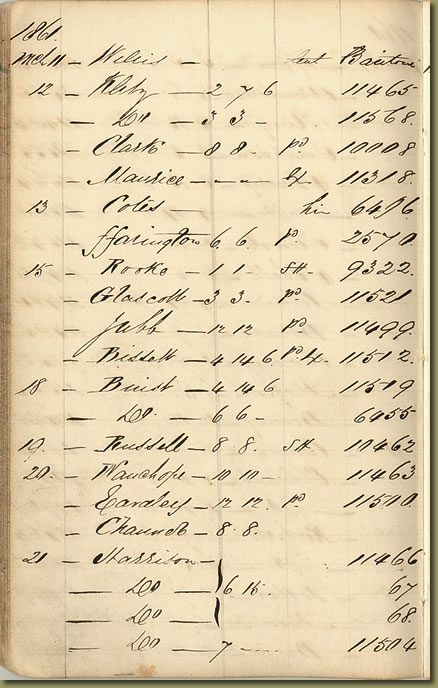 1861.
Mch 11 — Wilkis —
12 — Kelby — 2 7 6 11465
— Do — 3 3 - 11568.
— Clark — 8 8 - pd. 10008
— Maurice — — — Ex. 11318.
13 — Cotes —
— ffarington 6. 6. pd. 2570
15 — Rooke — 1 1 - SH. 9322.
— Glascott — 3 3 - pd. 11521
— Jubb — 12 12 pd. 11499.
— Bissett — 4 14 6. pd. Ex. 11512.
18 — Buist — 4 14 6 11519
— Do. — 6 6 - 6455
19. — Russell — 8 8. SH 10462
20. — Wauchope — 10 10 — 11463
— Eardley — 12 12. pd. 11510.
— — 8. 8.
21 — Harrison — 11466
— Do — 6. 15. 67
— Do — 68.
— Do — 7 — 11504